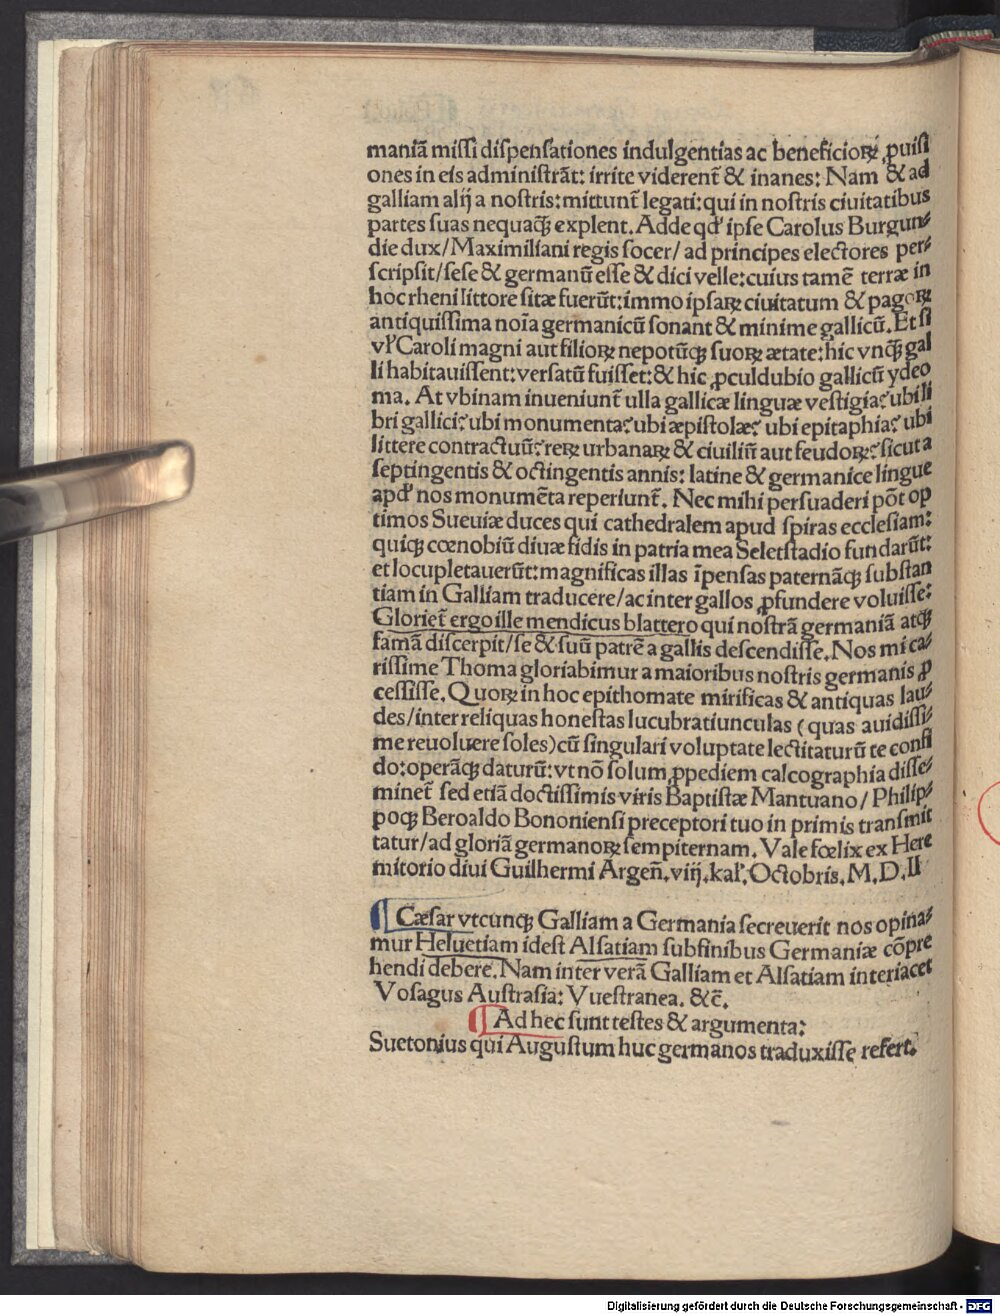 maniā missi dispensationes indulgentias ac beneficioꝝ ꝓuisi
ones in eis administrāt: irrite viderent᷑ & inanes: Nam & ad
galliam alij a nostris: mittunt᷑ legati: qui in nostris ciuitatibus
partes suas nequaꝗ̃ explent. Adde qd' ipse Carolus Burgun⸗
die dux/Maximiliani regis socer/ ad principes electores per⸗
scripsit/sese & germanū esse & dici velle: cuius tamē terræ in
hoc rheni littore sitæ fuerūt: immo ipsaꝝ ciuitatum & pagoꝝ
antiquissima noīa germanicū sonant & minime gallicū. Et si
vl' Caroli magni aut filioꝝ nepotūqꝫ suoꝝ ætate: hic vnꝗ̃ gal
li habitauissent: versatū fuisset: & hic ꝓculdubio gallicū ydeo
ma. At vbinam inueniunt᷑ ulla gallicæ linguæ vestigia? ubi li
bri gallici? ubi monumenta? ubi æpistolæ? ubi epitaphia? ubi
littere contractuū? reꝝ urbanaꝝ & ciuiliū aut feudoꝝ? sicut a
septingentis & octingentis annis: latine & germanice lingue
apd' nos monumēta reperiunt᷑. Nec mihi persuaderi pōt op
timos Sueuiæ duces qui cathedralem apud spiras ecclesiam:
quiqꝫ cœnobiū diuæ fidis in patria mea Seletstadio fundarūt:
et locupletauerūt: magnificas illas īpensas paternāqꝫ substan
tiam in Galliam traducere/ac inter gallos ꝓfundere voluisse:
Gloriet᷑ ergo ille mendicus blattero qui nostrā germaniā atqꝫ
famā discerpit/se & suū patrē a gallis descendisse. Nos mi ca⸗
rissime Thoma gloriabimur a maioribus nostris germanis ꝓ
cessisse. Quoꝝ in hoc epithomate mirificas & antiquas lau⸗
des/inter reliquas honestas lucubratiunculas (quas auidissi⸗
me reuoluere soles) cū singulari voluptate lectitaturū te confi
do: operāqꝫ daturū: vt nō solum ꝓpediem calcographia disse⸗
minet᷑ sed etiā doctissimis viris Baptistæ Mantuano/ Philip⸗
poqꝫ Beroaldo Bononiensi preceptori tuo in primis transmit
tatur/ad gloriā germanoꝝ sempiternam. Vale fœlix ex Here
mitorio diui Guilhermi Argeñ. viij. kal'. Octobris. M. D. II
¶ Cæsar vtcunqꝫ Galliam a Germania secreuerit nos opina⸗
mur Heluetiam idest Alsatiam subfinibus Germaniæ cōpre
hendi debere. Nam inter verā Galliam et Alsatiam interiacet
Vosagus Austrasia: Vuestranea. &c̄.
¶ Ad hec sunt testes & argumenta:
Suetonius qui Augustum huc germanos traduxisse refert.
Digitalisierung gefördert durch die Deutsche Forschungsgemeinschaft - DFG